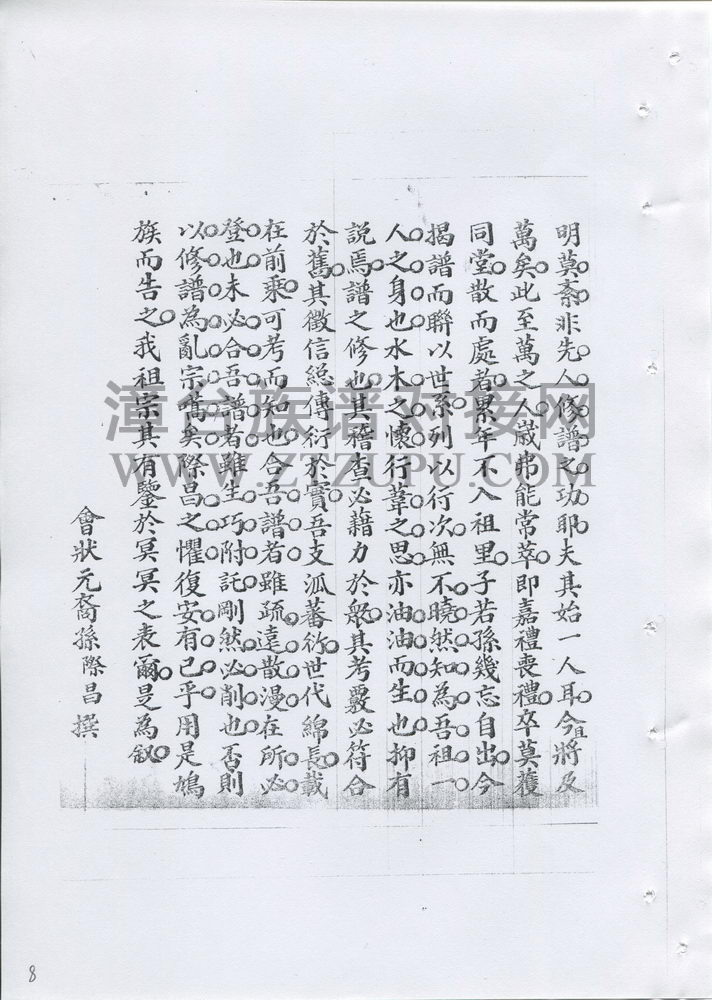 明莫紊非先人修譜之功耶夫其始一人耳今且將及
萬矣此至萬之人歲弗能常萃即嘉禮喪禮卒莫獲
同堂散而處者累年不入祖里子若孫幾忘自出今
揭譜而聯以世系列以行次無不曉然知為吾祖一
人之身也水木之懷行葦之思亦油油而生也抑有
說焉譜之修也其稽查必藉力於眾其考覈必符合
於舊其徵信総傳衍於實吾支派蕃衍世代綿長載
在前乘可考而知也合吾譜者雖疏遠散漫在所必
登也未必合吾譜者雖生巧附託剛然必削也否則
以修譜為亂宗嚆矣際昌之懼復安有已乎用是鳩
族而告之我祖宗其有鑒於冥冥之表爾是為叙
會狀元裔孫際昌撰
漳台族谱对接网
WWW.ZTZUPU.COM
8